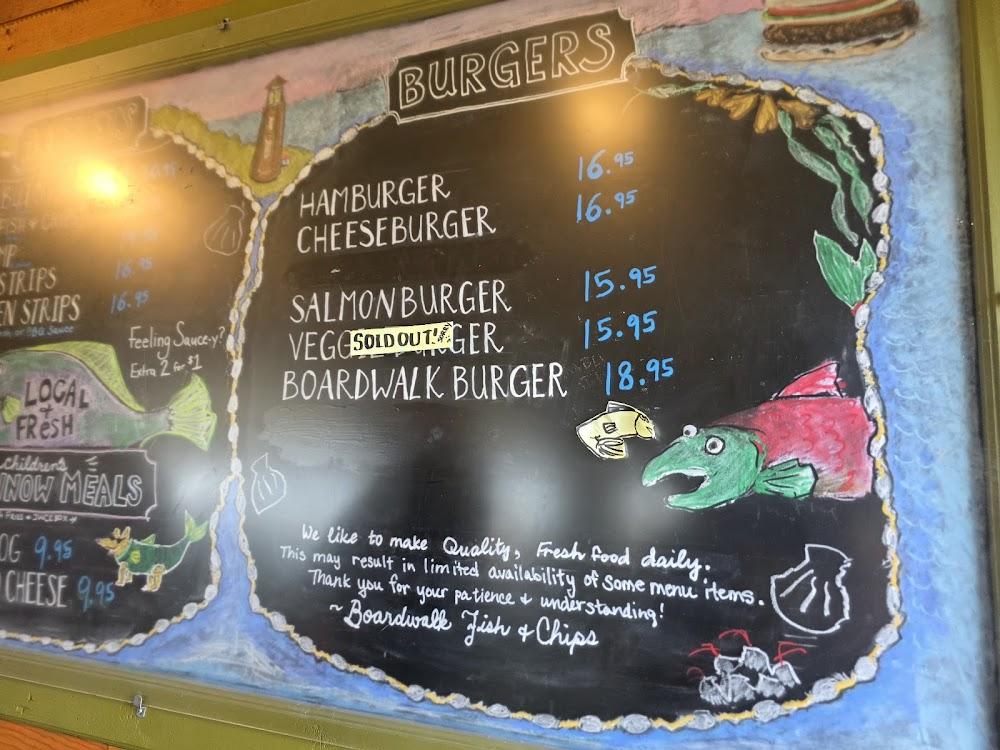 BURGERS
HAMBURGER 16.95
CHEESEBURGER 16.95
SALMON BURGER 15.95
VEGGIE BURGER 15.95
SOLD OUT!
BOARDWALK BURGER 18.95
We like to make Quality, Fresh food daily.
This may result in limited availability of some menu items.
Thank you for your patience & understanding!
~Boardwalk Fish & Chips
16.95
STRIPS
EN STRIPS 16.95
BBQ Sauce
Feeling Sauce-y?
Extra 2 for $1
LOCAL
+
FRESH
Children's
NOW MEALS
OG 9.95
CHEESE 9.95